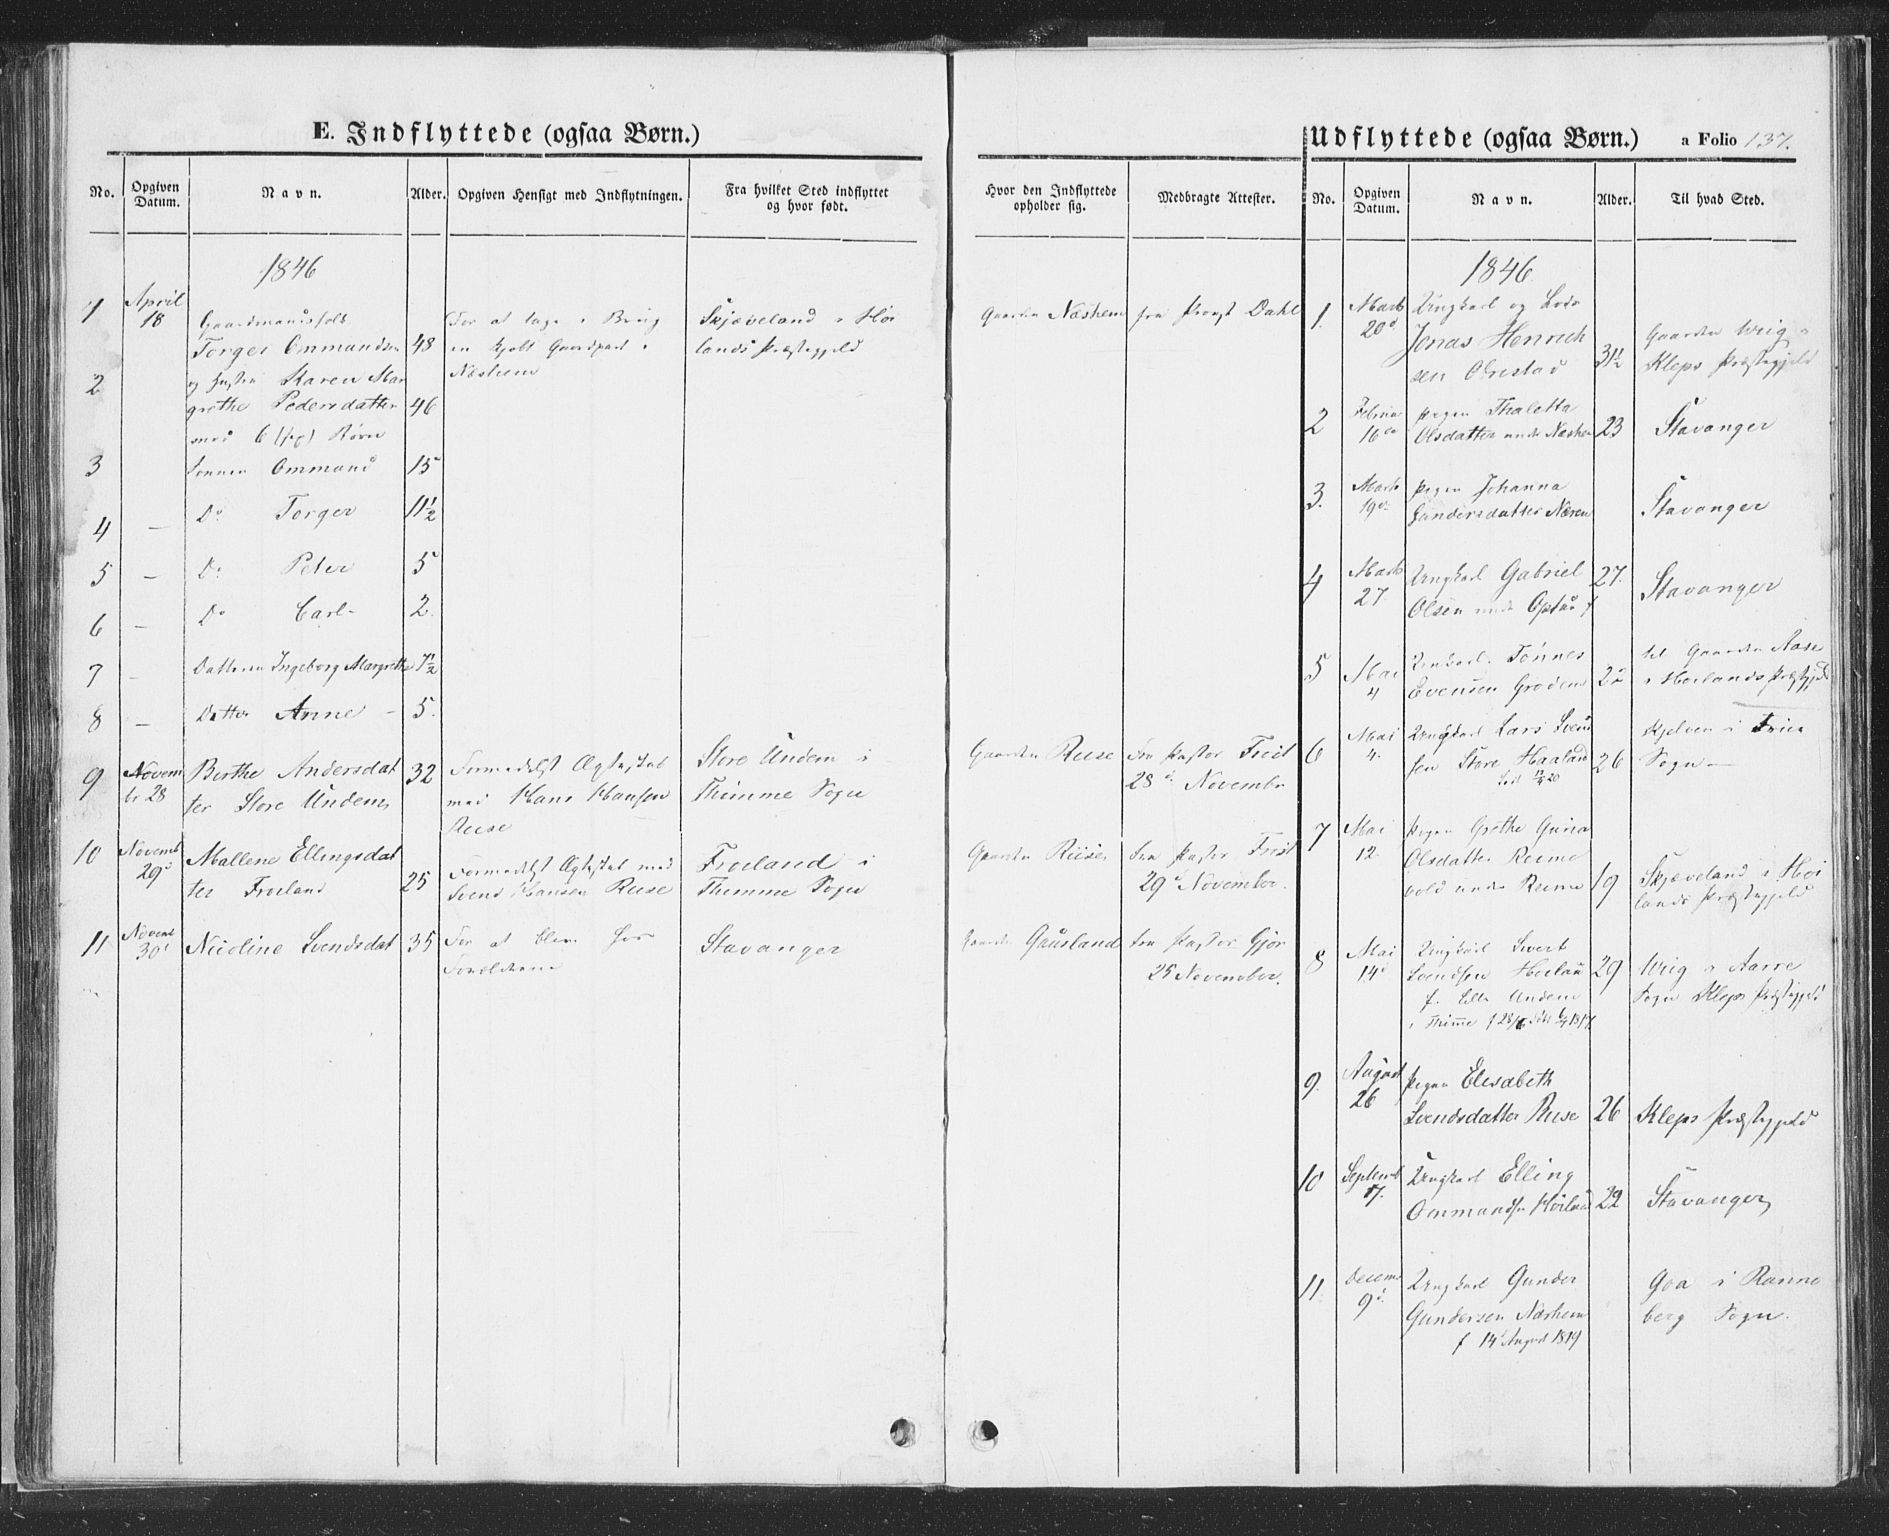 E. Indflyttede (ogsaa Børn.)
No.
Opgiven Datum.
Navn.
Alder.
Opgiven Hensigt med Indflytningen.
Fra hvilket Sted indflyttet og hvor født.
Hvor den Indflyttede opholder sig.
Medbragte Attester.
1846
1 April 18 Gaardmandsfolk
Torger Ommundsen 48 For at tage i Brug
en kjøbt Gaardpart i
Næshem
Skjæveland i Høi
lands Præstegjeld
Gaarden Næshem fra Provst Dahl
2 og Hustru Karen Mar
grethe Pedersdatter 46
med 6 Børn
3 Sønnen Ommund 15
4 — Do Torger 11½
5 — Do Peter 5
6 — Do Carl 2.
7 — Datteren Ingeborg Margrethe 7½
8 — Datter Anne — 5.
9 Novem
br 28 Berthe Andersdat
ter Store Undem 32 Formedelst Ægteskab
med Hans Hansen
Ruse
Store Undem i
Thimme Sogn
Gaarden Ruse Fra Pastor Krist
28d Novembr
10 Novemb
29d Mallene Ellingsdat
ter Froeland 25 Formedelst Ægteskab med
Svend Hansen Ruse
Froeland i
Thimme Sogn
Gaarden Riise Fra Pastor
29d November.
11 Novemb
30d Nicoline Svendsdat 35 For at blive hos
Forældrene
Stavanger
Gaarden Gausland fra Pastor Gjør
25 November.
Udflyttede (ogsaa Børn.) a Folio 137.
No.
Opgiven Datum.
Navn.
Alder.
Til hvad Sted.
1846.
1. Marts
20d Ungkarl og
Jonas Henrich
sen Orrestad 31½ Gaarden Wrig i
Kleps Præstegjeld
2 Februar
16en Pigen Thaletta
Olsdatter Næshem 23 Stavanger
3. Marts
19de Pigen Johanna
Gundersdatter Næren Stavanger
4 Marts
27 Ungkarl Gabriel
Olsen Opstad 27. Stavanger
5 Mai
4 Ungkarl Tønnes
Evensen Groden til Gaarden Aase
i Høilands Præstegjeld
6 Mai
4. Ungkarl Lars Svend
sen Store Haaland 26 i
Sogn —
7 Mai
12 Pigen Grethe Guria
Olsdatter Reime
vold under Reime 19 Skjæveland i Høi
lands Præstegjeld
8 Mai
14d Ungkarl Sivert
Svendsen Høiland
f. Lille Undem
i Thime 29 Wrig i Aarre
Sogn Kleps Præstegjeld
9. August
26 Pigen Elisabeth
Svendsdatter Ruse 26 Kleps Præstegjeld
10 Septemb
17. Ungkarl Elling
Ommundsen Høiland 22 Stavanger
11. Decemb
9d. Ungkarl Gunder
Gundersen Næshem
f 14d August 1819
Goa i Ranne
berg Sogn.